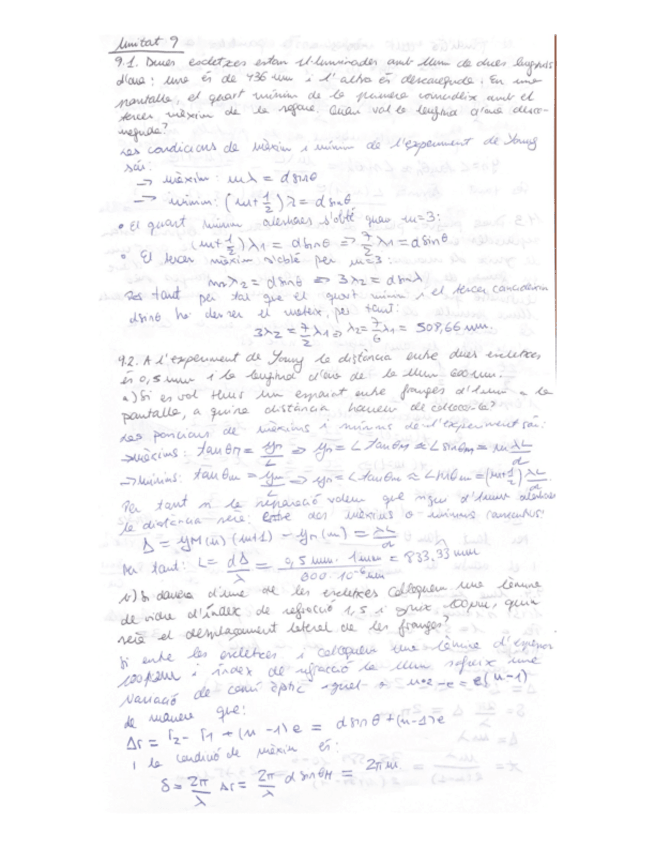 Unitat 9
9.1. Dues escletxes estan il·luminades amb llum de dues longituds
d'ona: una és de 436 nm i l'altra és desconeguda. En una
pantalla, el quart mínim de la primera coincideix amb el
tercer màxim de la segona. Quan val la longitud d'ona desco-
neguda?
Les condicions de màxim i mínim de l'experiment de Young
són:
→ màxim: mλ = d sinθ
→ mínim: (m+1/2)λ = d sinθ
• El quart mínim aleshores s'obté quan m=3:
(m+1/2)λ1 = d sinθ => 7/2 λ1 = d sinθ
• El tercer màxim s'obté per m=3:
mλ2 = d sinθ => 3λ2 = d sinλ
Per tant per tal que el quart mínim i el tercer coincideixin
d sinθ ha de ser el mateix, per tant:
3λ2 = 7/2 λ1 => λ2 = 7/6 λ1 = 508,66 nm.
9.2. A l'experiment de Young la distància entre dues escletxes
és 0,5 mm i la longitud d'ona de la llum 600 nm.
a) Si es vol tenir un espaiat entre franges d'1 mm a la
pantalla, a quina distància haurem de
Les posicions de màxims i mínims de l'experiment són:
→ màxims: tanθM = yM/L => yM = L tanθM ≈ L sinθM = m λL/d
→ mínims: tanθm = ym/L => ym = L tanθm ≈ L sinθm = (m+1/2) λL/d
Per tant si la separació volem que sigui d'1 mm aleshores
la distància serà: entre dos màxims o mínims consecutius:
Δ = yM(m)(m+1) - yM(m) = λL/d
Per tant: L = dΔ/λ = 0,5 mm · 1 mm / 600·10⁻⁶ mm = 833,33 mm
b) Si davant d'una de les escletxes col·loquem una làmina
de vidre d'índex de refracció 1,5 i gruix 100 μm, quin
serà el desplaçament lateral de les franges?
Si entre les escletxes i col·loquem una làmina d'espessor
100 μm i índex de refracció la llum sofreix una
variació de camí òptic igual a n·e - e = e(n-1)
de manera que:
Δr = r2 - r1 + (n-1)e = d sinθ + (n-1)e
i la condició de màxim és:
δ = 2π/λ Δr = 2π/λ d sinθM = 2πm